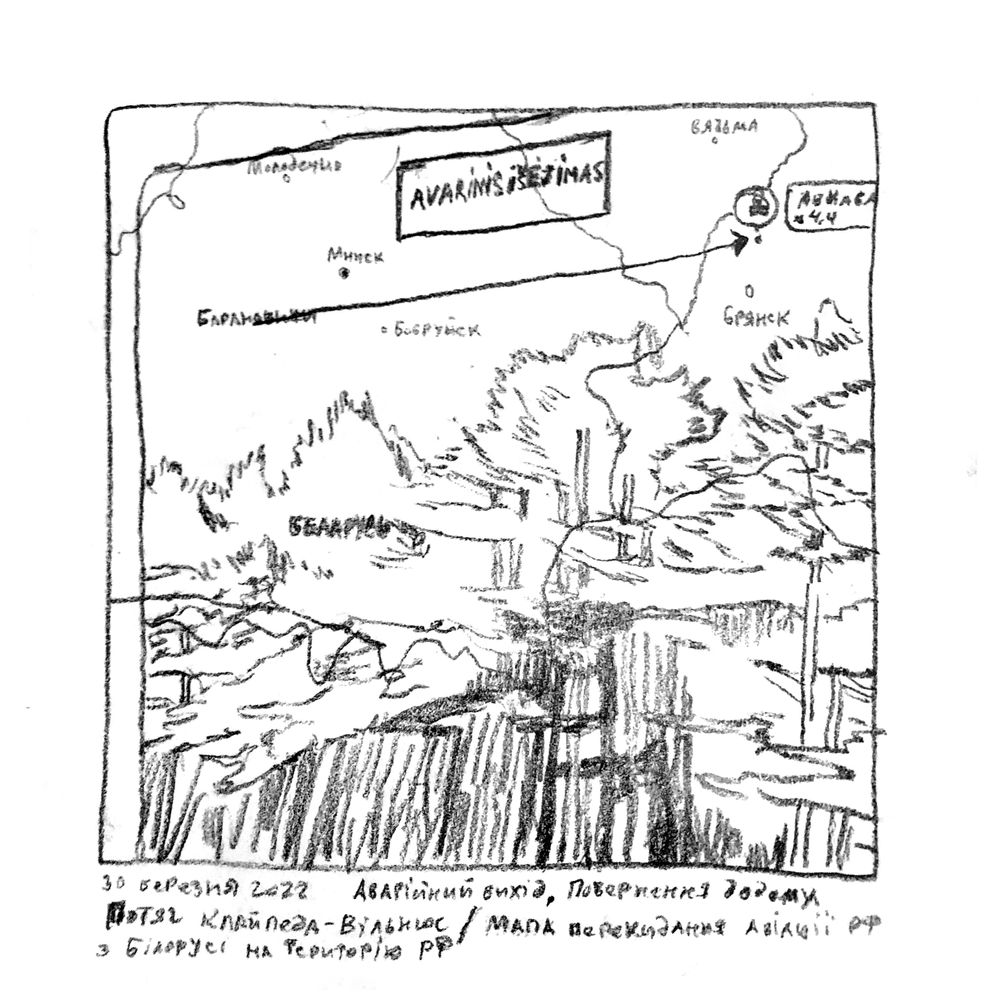 Вязьма
Молодечно
AVARINIS IŠĖJIMAS
Минск
Барановичи
Бобруйск
Брянск
Беларусь
30 березня 2022 Аварійний вихід, Повернення додому
Потяг Клайпеда-Вільнюс / Мапа перекидання авіації РФ
з Білорусі на територію РФ